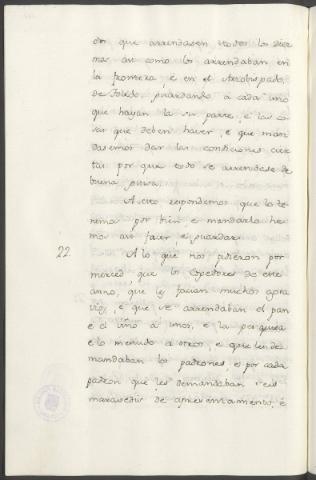 dor que arrendasen todos los diez
mos asi como los arrendaban en
la frontera, e en el Arzobispado
de Toledo, guardando a cada uno
que hayan la su parte, e las co
sas que deben haver, e que man
dasemos dar las condiciones cier
tas por que todo se arrendase de
buena guisa.
A esto respondemos que lo te
nemos por bien e mandarlo he
mos asi facer, e guardar.
22. A lo que nos pidieron por
merced, que los Cogedores de este
anno, que les facian muchos agra
vios, e que se arrendaban el pan
e el vino a unos, e la
e lo menudo a otros, e que les de
mandaban los padrones, e por cada
padron que les demandaban seis
maravedis de apreventamiento, é